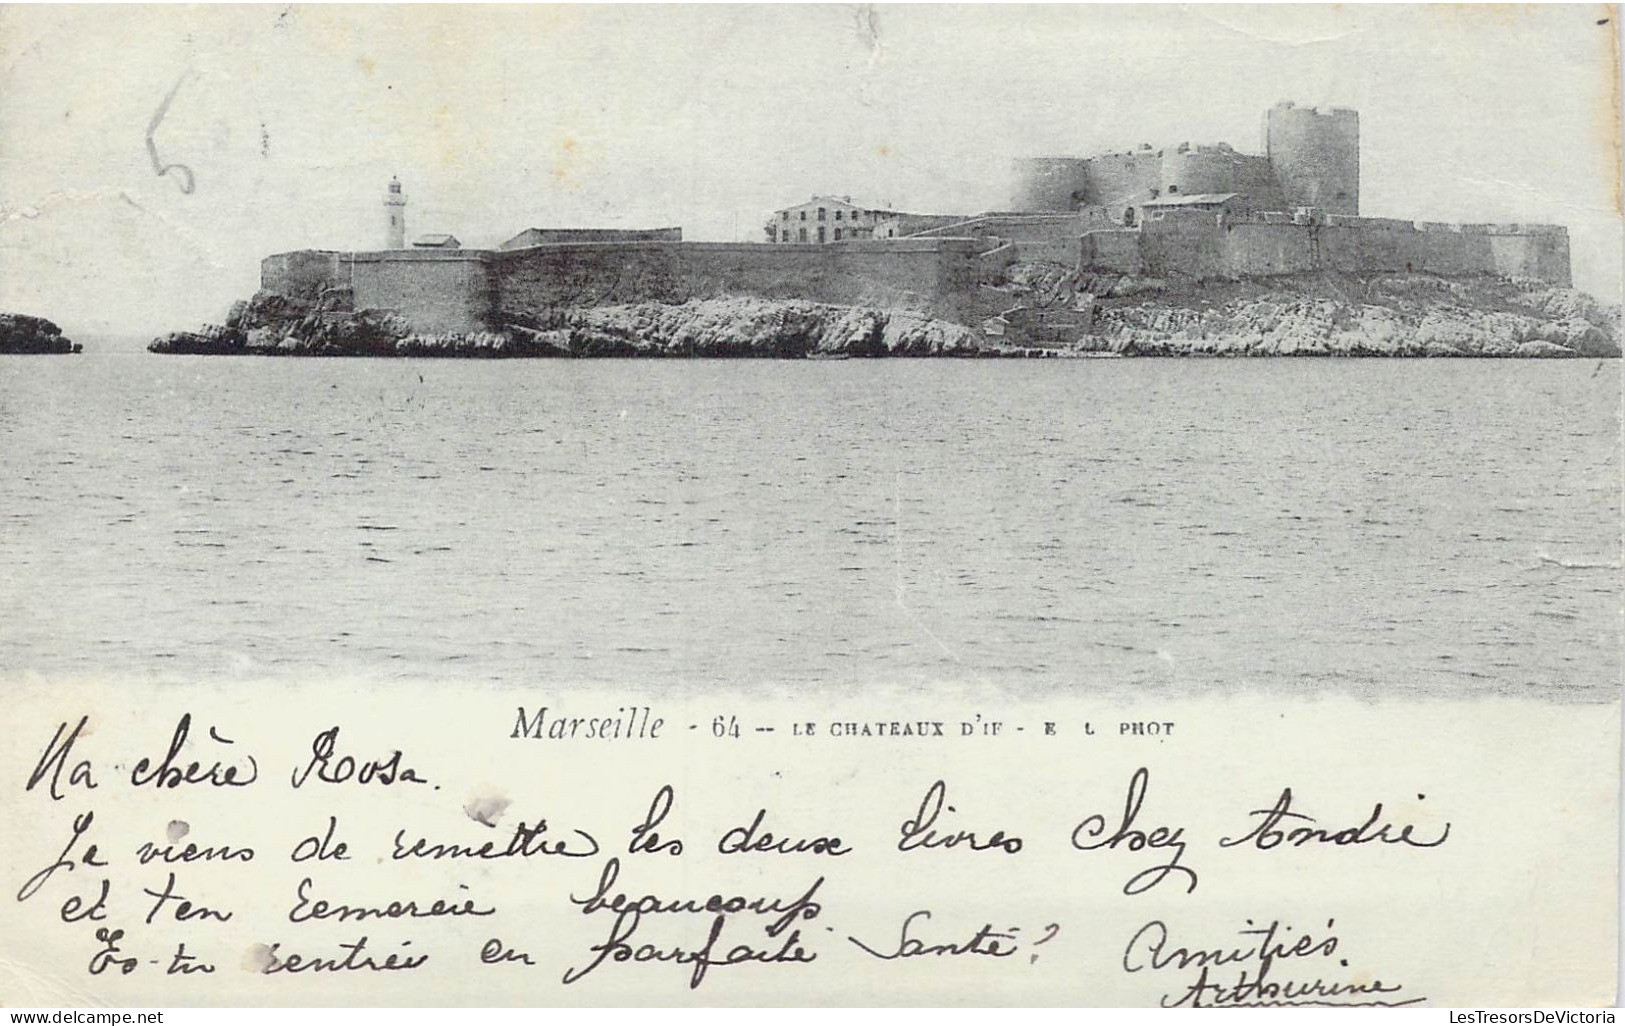 5
Marseille - 64 -- LE CHATEAUX D'IF - E L PHOT
Ma chère Rosa.
Je viens de remettre les deux livres chez André
et t'en remercie beaucoup
Es-tu rentrée en parfaite Santé? Amitiés.
Arthurine
delcampe.net
LesTresorsDeVictoria